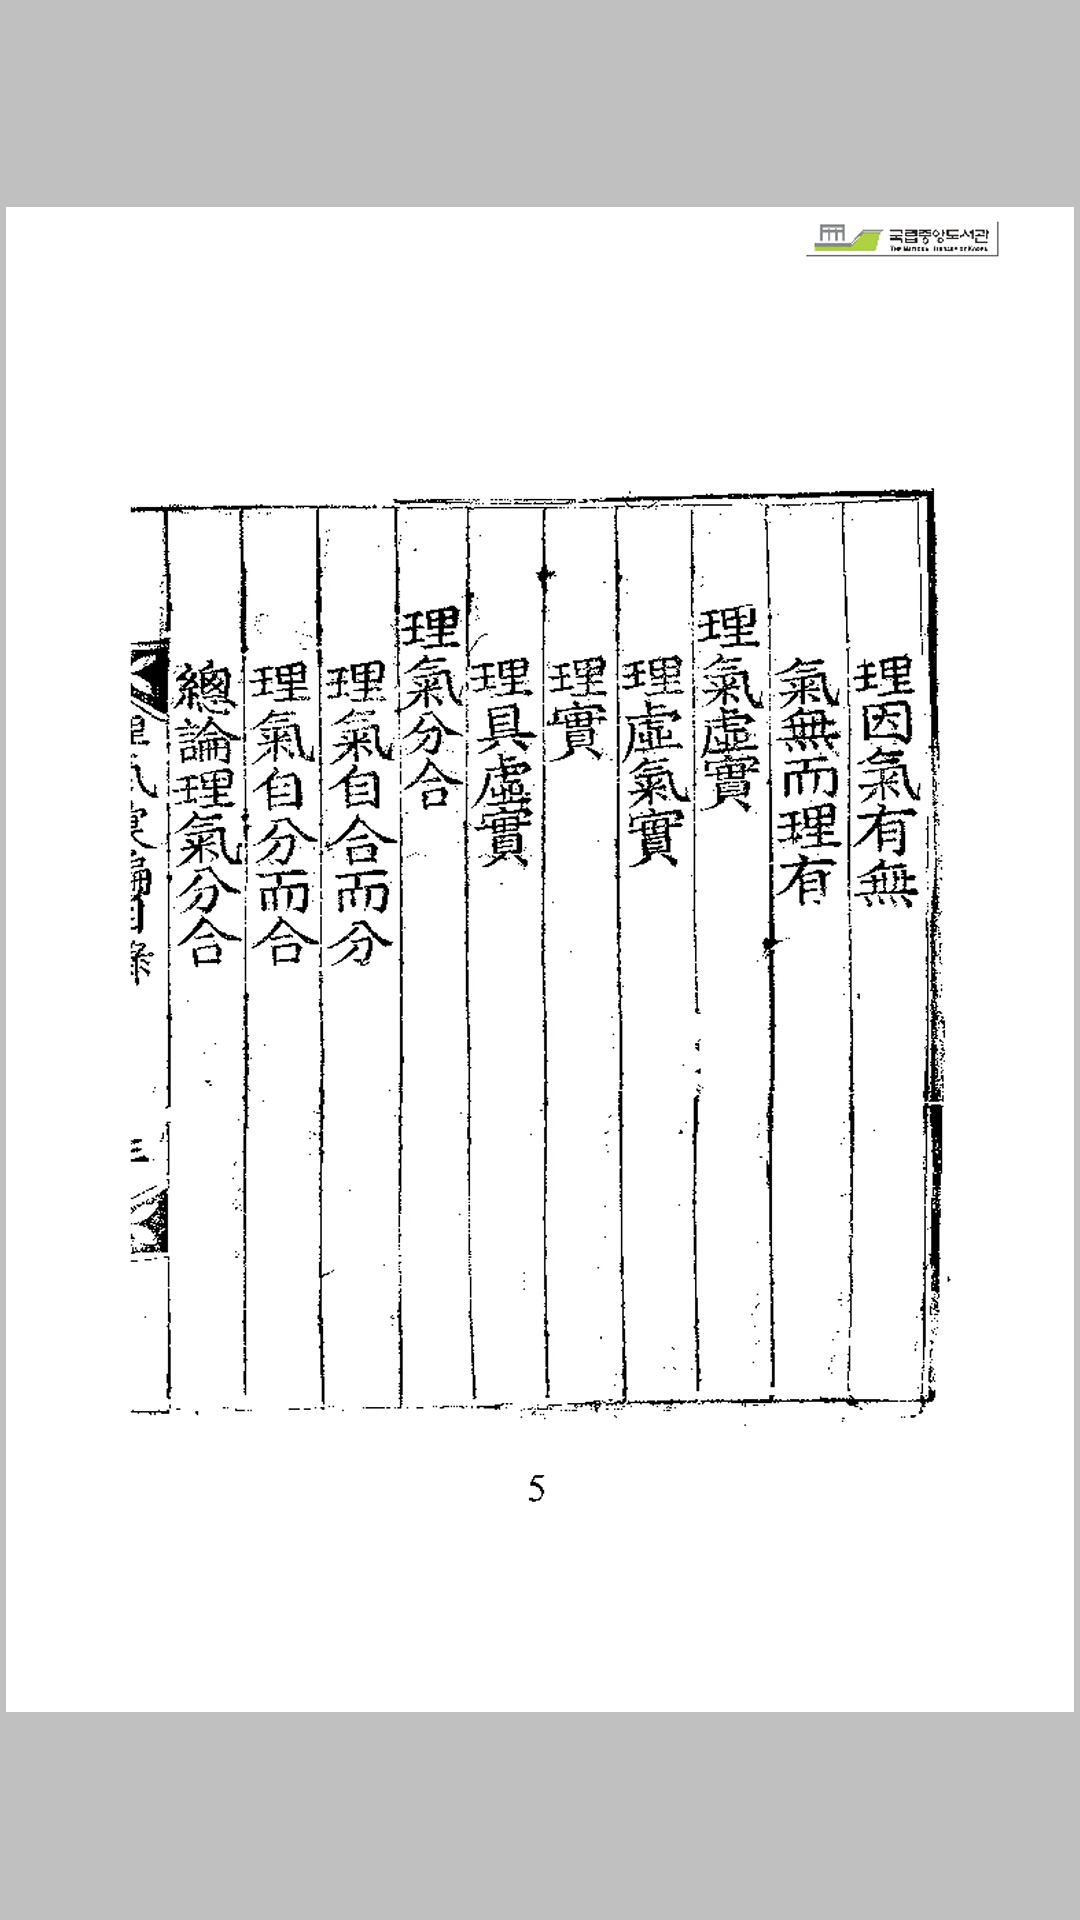 국립중앙도서관
理因氣有無
氣無而理有
理氣虛實
理虛氣實
理實
理具虛實
理氣分合
理氣自合而分
理氣自分而合
總論理氣分合
目錄
三
5